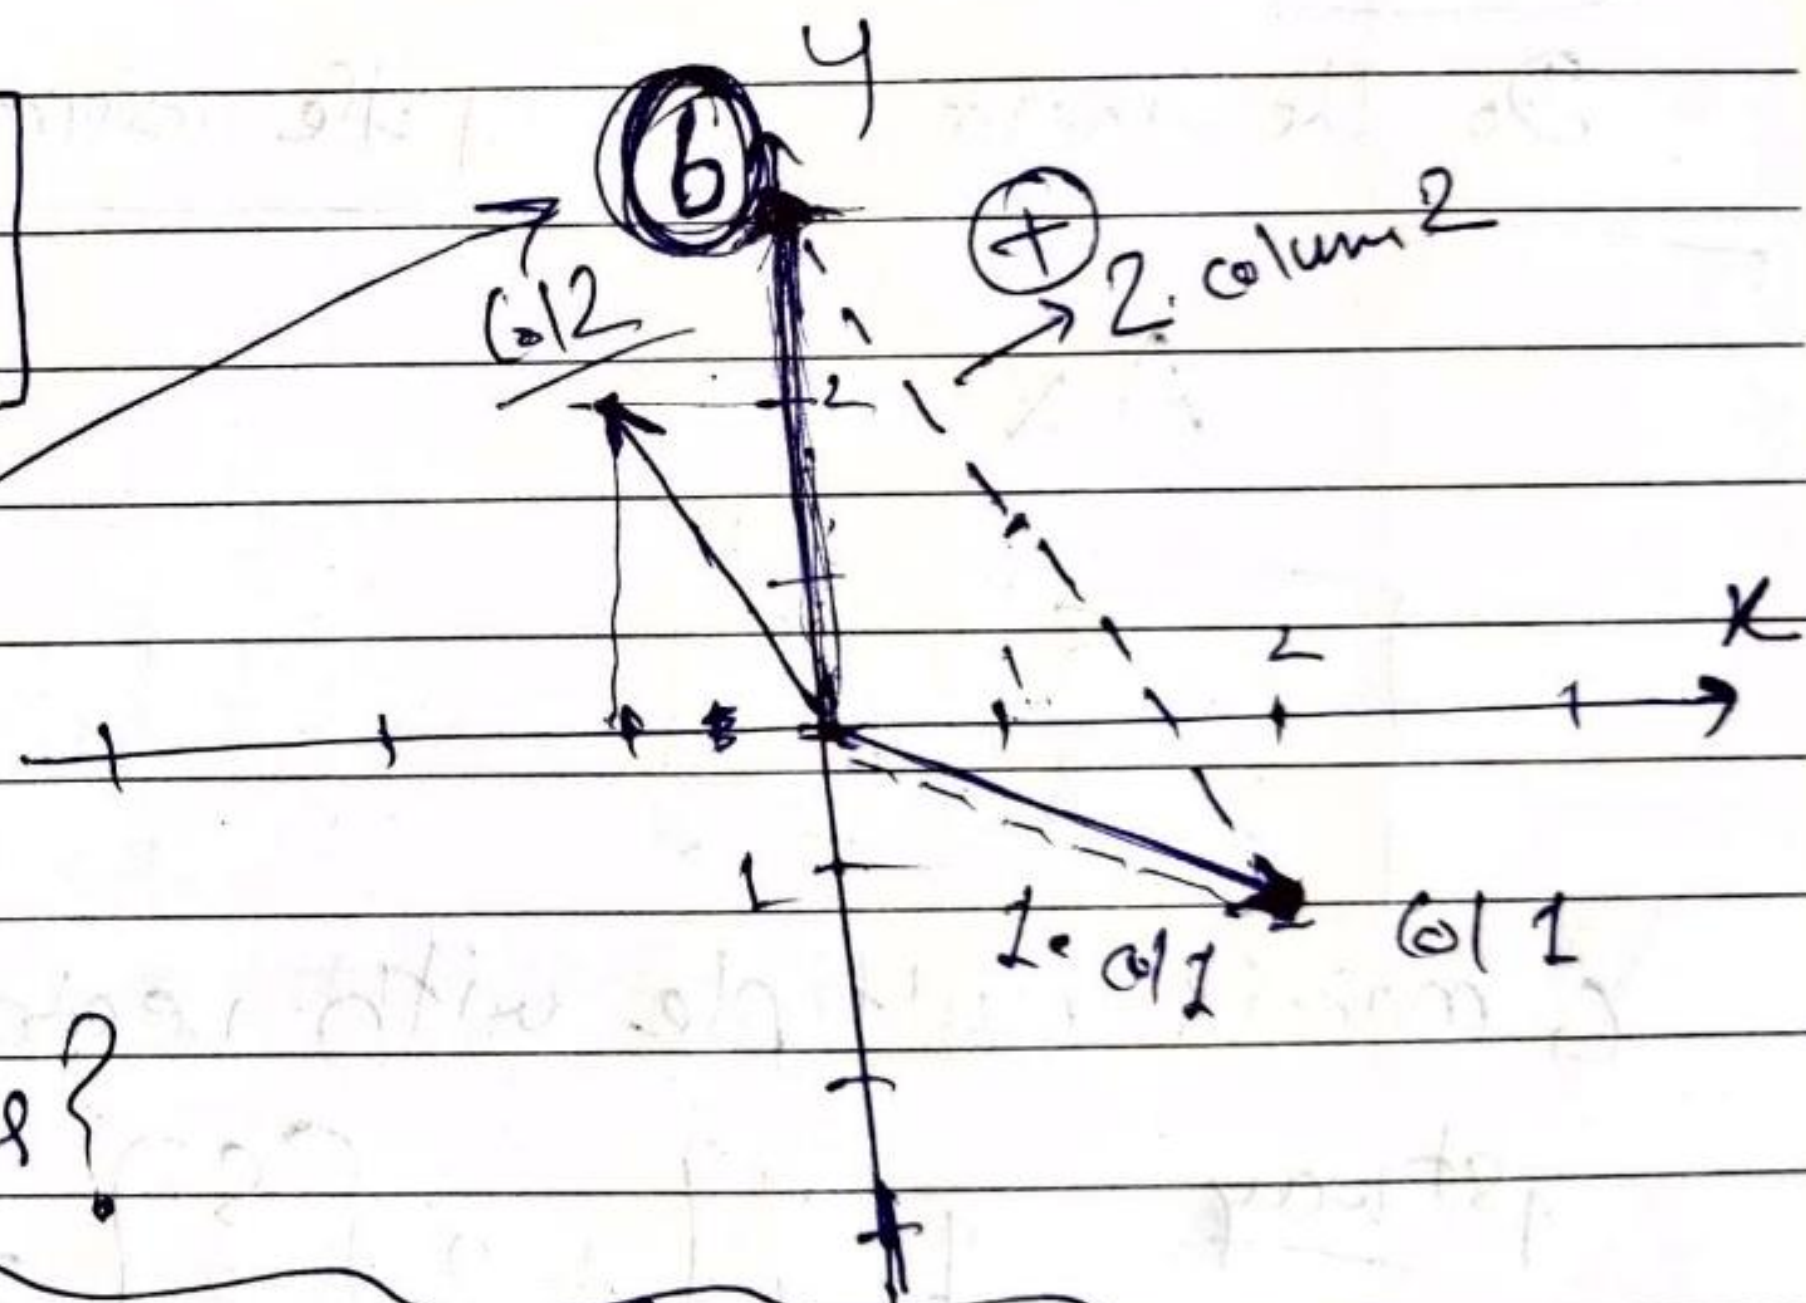 y
b
+ 2. column 2
Col 2
2
x
1 2
1
1. col 1 Col 1
?